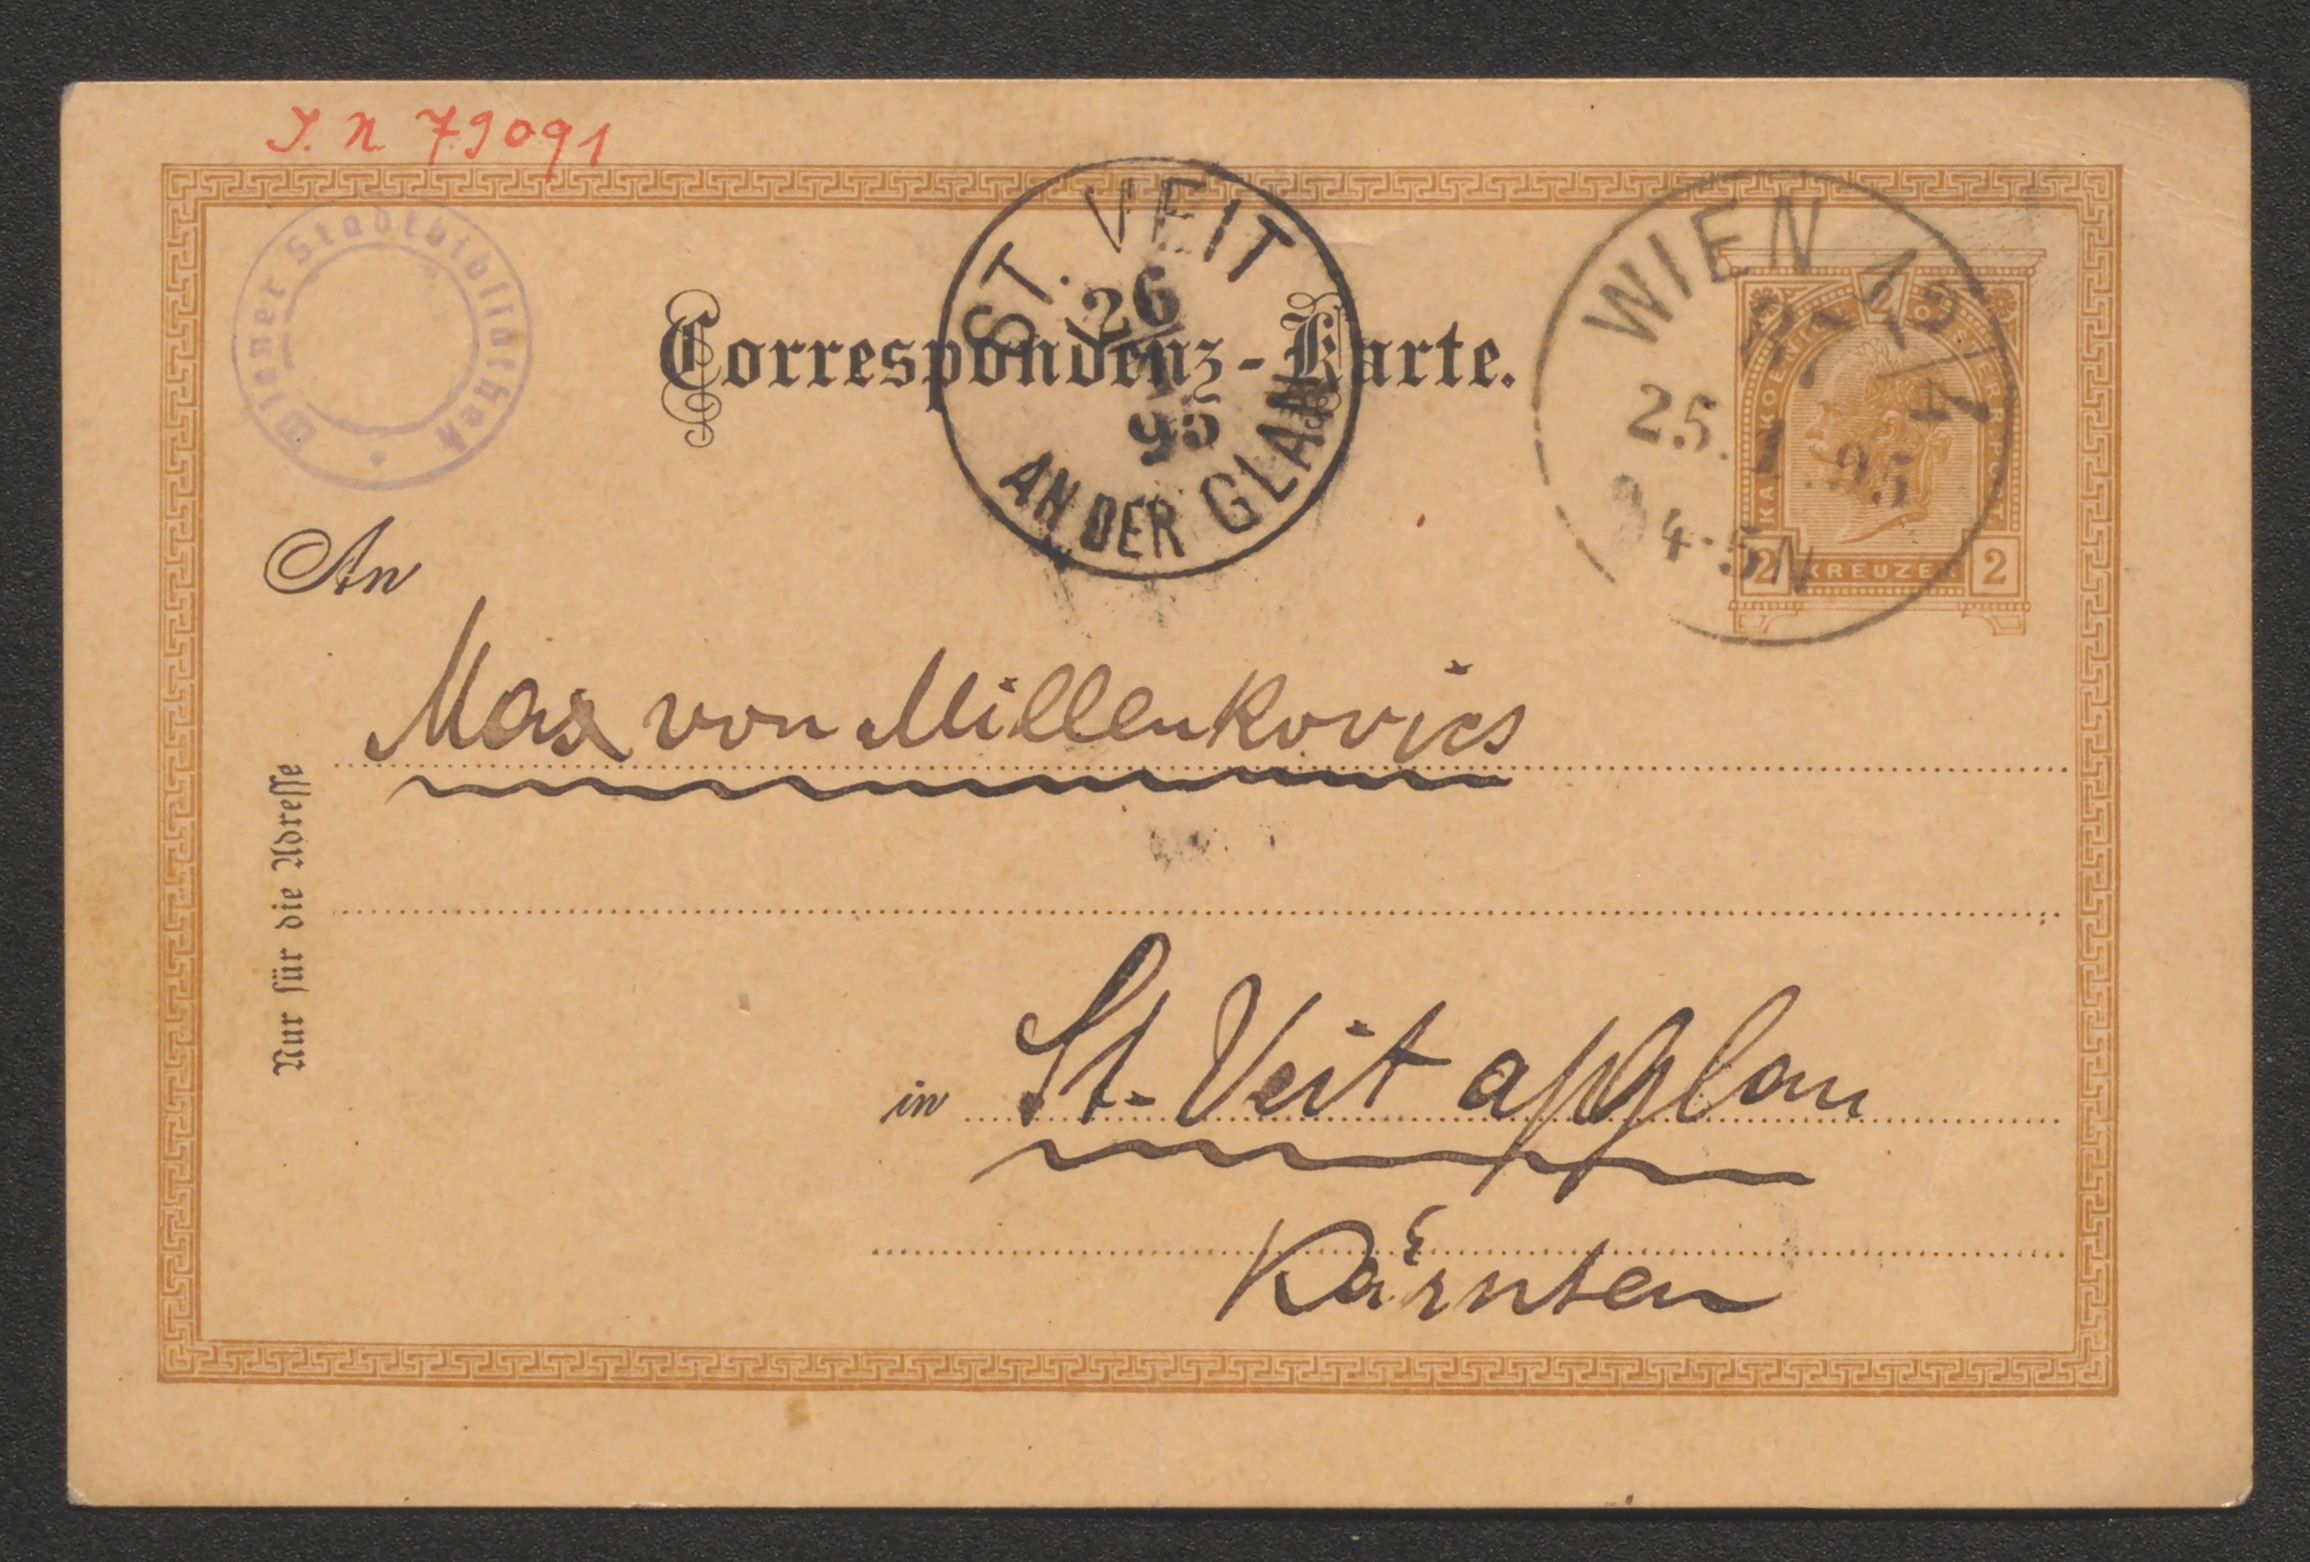 J. N. 79091
Wiener Stadtbibliothek
ST. VEIT
26
1
95
AN DER GLAN
WIEN
25. 1. 95
4-5N
KREUZER
2 2
Correspondenz-Karte.
An
Max von Millenkovics
Nur für die Adresse
in St. Veit a/Glan
Kärnten